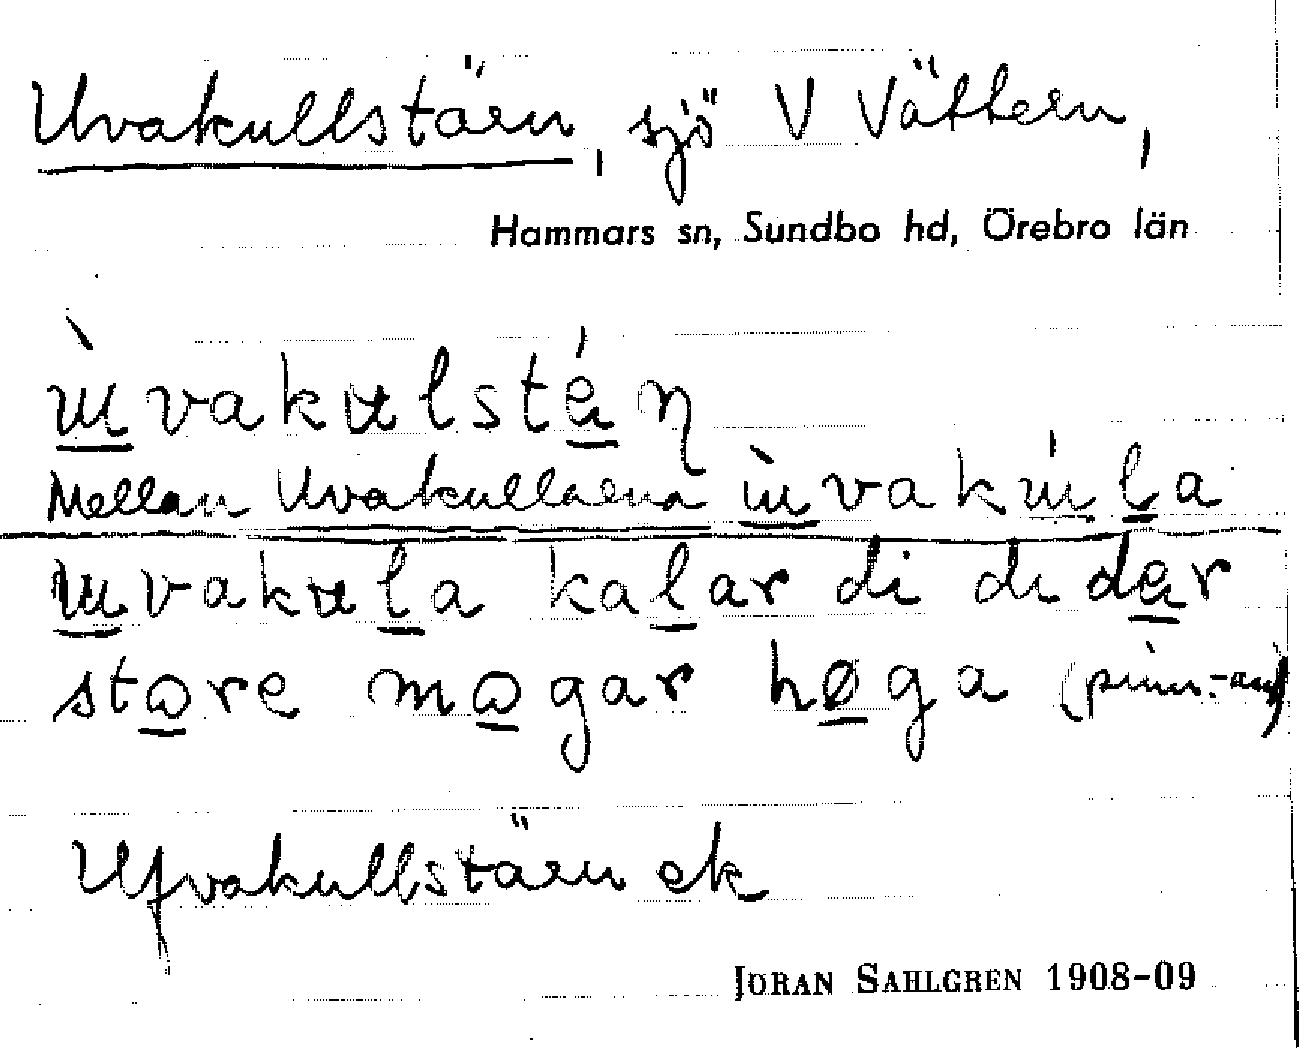 Uvakullstärn, sjö V Vättern,
Hammars sn, Sundbo hd, Örebro län
ùvakulstá̤ɳ
Mellan Uvakullarna ùvakúla
uvakula kalar di di där
store mogar høga
Ufvakullstärn ek
JÖRAN SAHLGREN 1908-09